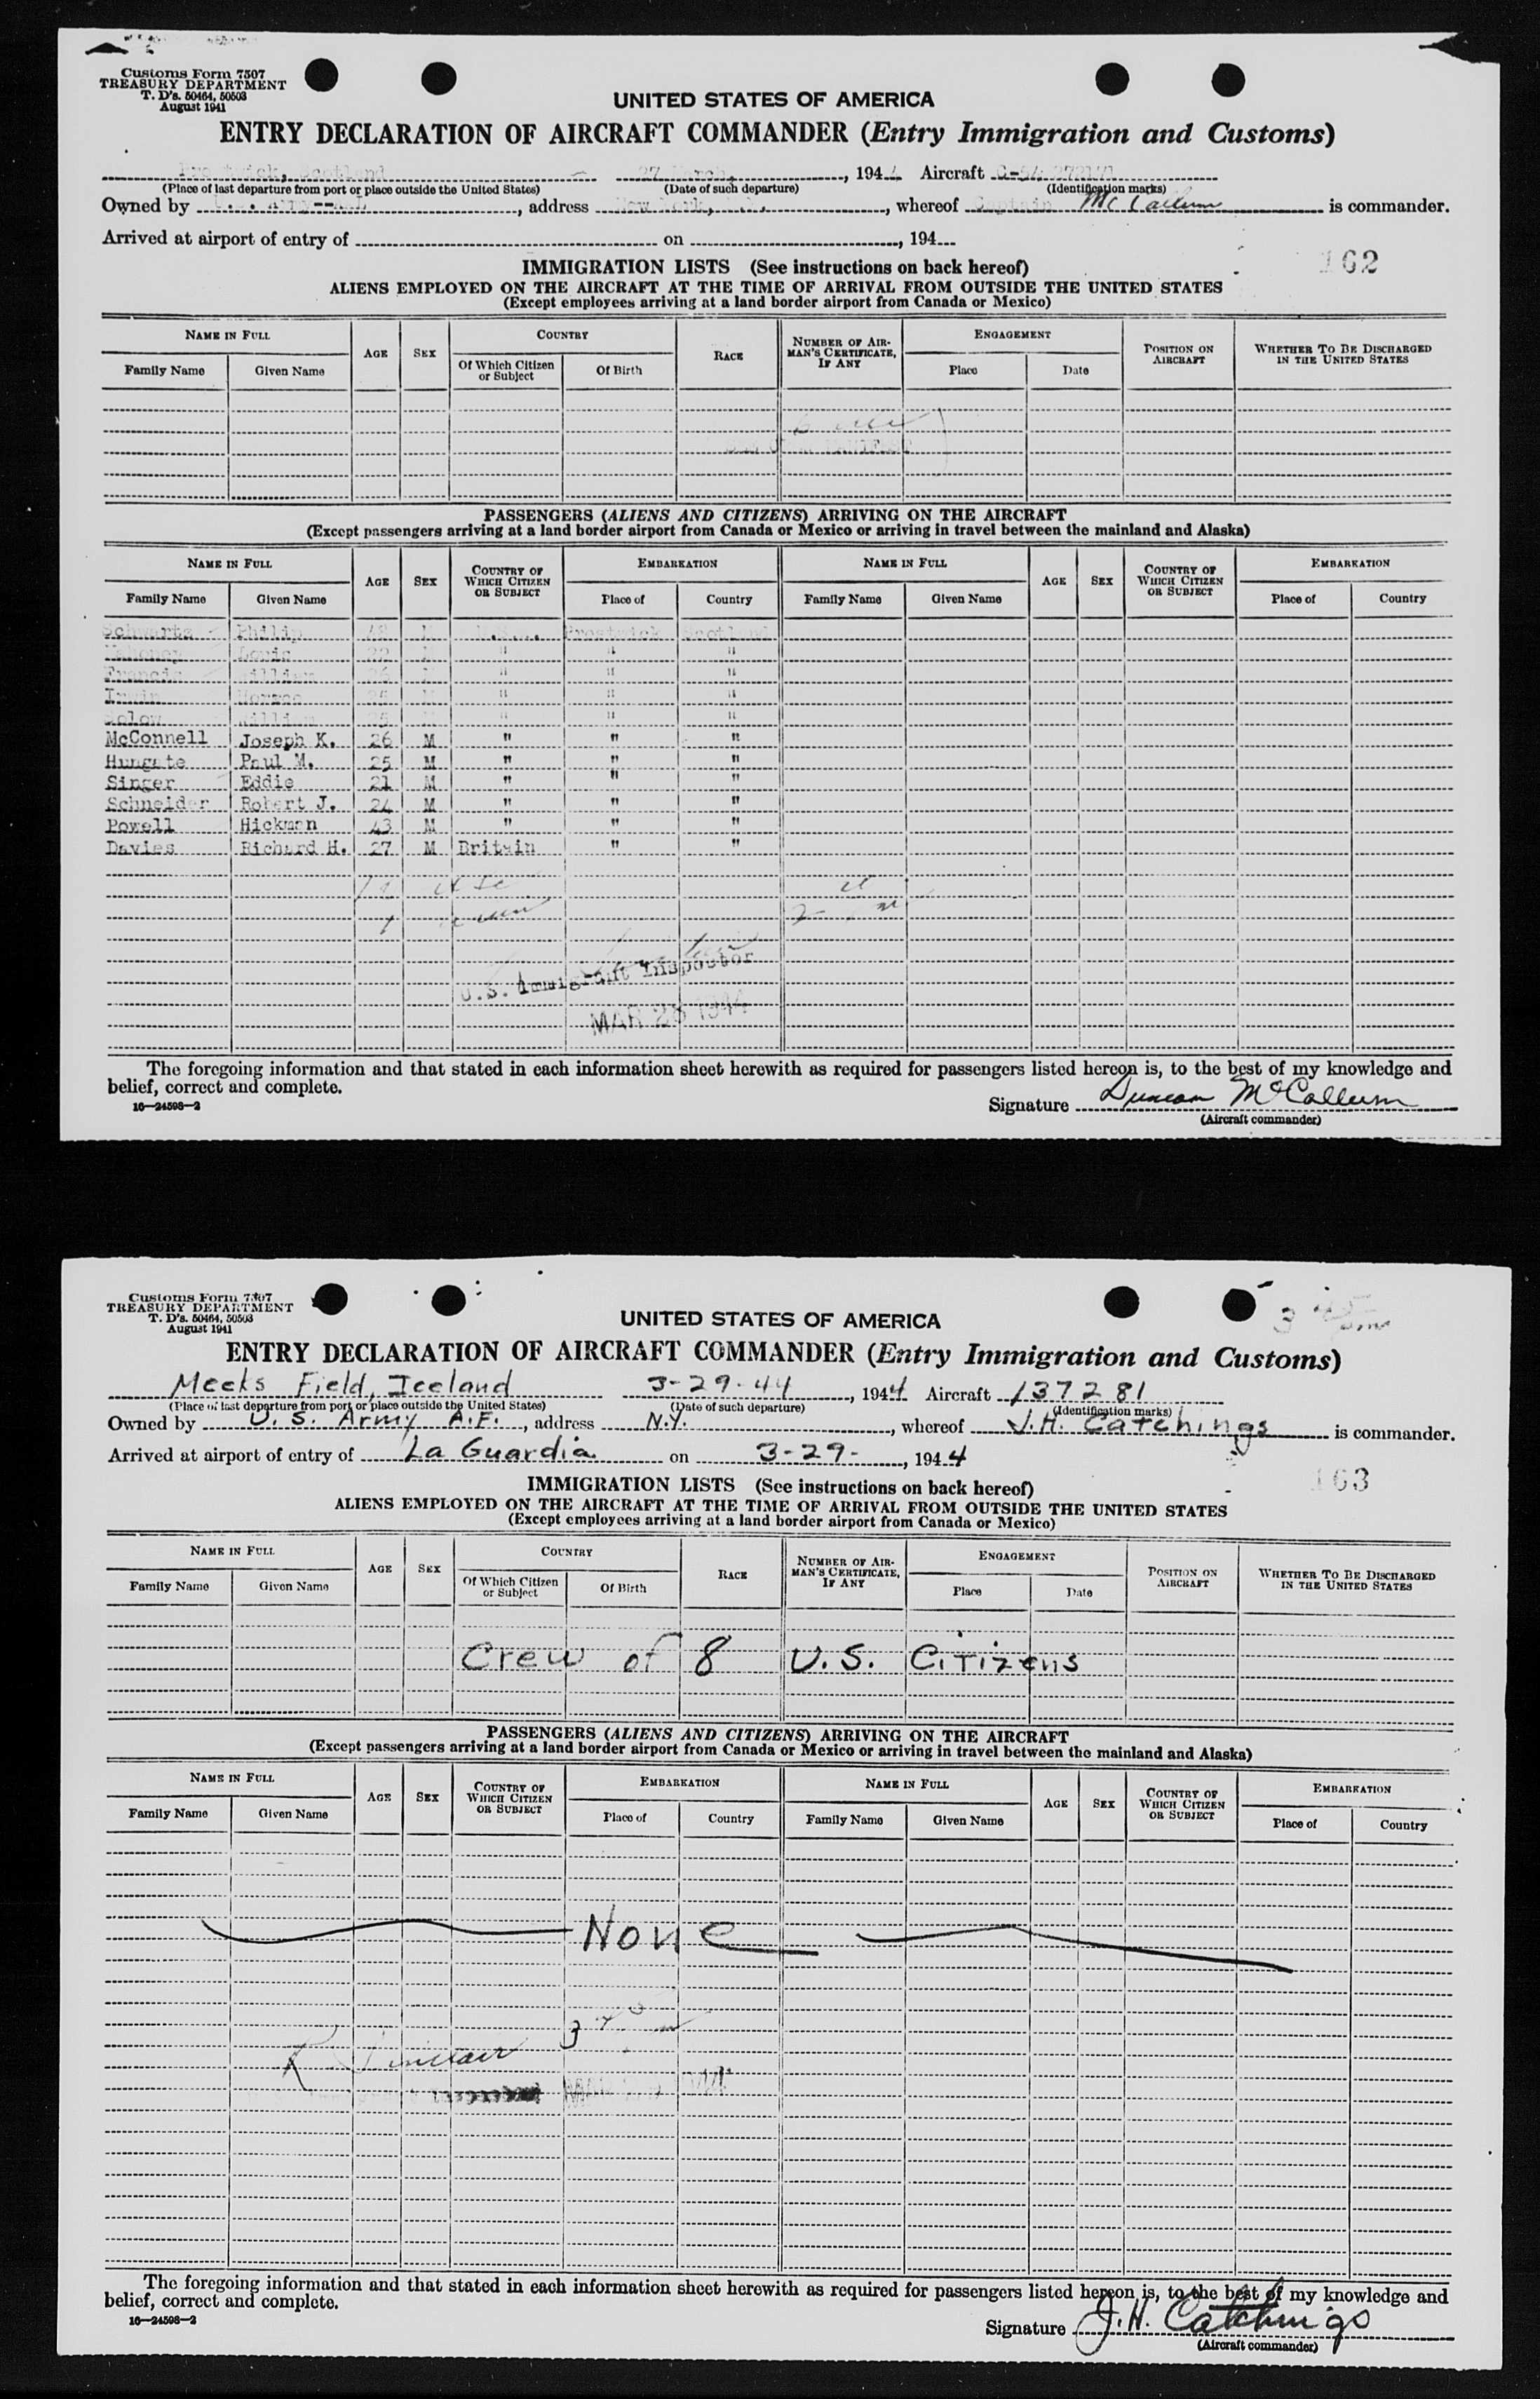 Customs Form 7507
TREASURY DEPARTMENT
T. D's. 50464, 50503
August 1941
UNITED STATES OF AMERICA
ENTRY DECLARATION OF AIRCRAFT COMMANDER (Entry Immigration and Customs)
Prestwick, Scotland 27 March, 1944 Aircraft C-54
(Place of last departure from port or place outside the United States) (Date of such departure) (Identification marks)
Owned by U.S. Army, address New York, N.Y., whereof Captain McCallum is commander.
Arrived at airport of entry of on , 194
162
IMMIGRATION LISTS (See instructions on back hereof)
ALIENS EMPLOYED ON THE AIRCRAFT AT THE TIME OF ARRIVAL FROM OUTSIDE THE UNITED STATES
(Except employees arriving at a land border airport from Canada or Mexico)
NAME IN FULL AGE SEX COUNTRY RACE NUMBER OF AIRMAN'S CERTIFICATE, IF ANY ENGAGEMENT POSITION ON AIRCRAFT WHETHER TO BE DISCHARGED IN THE UNITED STATES
Family Name Given Name Of Which Citizen or Subject Of Birth Place Date
PASSENGERS (ALIENS AND CITIZENS) ARRIVING ON THE AIRCRAFT
(Except passengers arriving at a land border airport from Canada or Mexico or arriving in travel between the mainland and Alaska)
NAME IN FULL AGE SEX COUNTRY OF WHICH CITIZEN OR SUBJECT EMBARKATION NAME IN FULL AGE SEX COUNTRY OF WHICH CITIZEN OR SUBJECT EMBARKATION
Family Name Given Name Place of Country Family Name Given Name Place of Country
Schwartz Philip 48 M Prestwick Scotland
Mahoney Louis M " " "
Francis William 26 M " " "
Irwin 25 M " " "
Solow William 25 M " " "
McConnell Joseph K. 26 M " " "
Hungate Paul M. 25 M " " "
Singer Eddie 21 M " " "
Schneider Robert J. 24 M " " "
Powell Hickman 43 M " " "
Davies Richard H. 27 M Britain " "
U.S. Immigrant Inspector
MAR 28 1944
The foregoing information and that stated in each information sheet herewith as required for passengers listed hereon is, to the best of my knowledge and
belief, correct and complete.
16—24598-2
Signature Duncan McCallum
(Aircraft commander)
Customs Form 7507
TREASURY DEPARTMENT
T. D's. 50464, 50503
August 1941
UNITED STATES OF AMERICA
ENTRY DECLARATION OF AIRCRAFT COMMANDER (Entry Immigration and Customs)
Meeks Field, Iceland 3-29-44, 1944 Aircraft 137281
(Place of last departure from port or place outside the United States) (Date of such departure) (Identification marks)
Owned by U.S. Army A.F., address N.Y., whereof J.H. Catchings is commander.
Arrived at airport of entry of La Guardia on 3-29-, 1944
163
IMMIGRATION LISTS (See instructions on back hereof)
ALIENS EMPLOYED ON THE AIRCRAFT AT THE TIME OF ARRIVAL FROM OUTSIDE THE UNITED STATES
(Except employees arriving at a land border airport from Canada or Mexico)
NAME IN FULL AGE SEX COUNTRY RACE NUMBER OF AIRMAN'S CERTIFICATE, IF ANY ENGAGEMENT POSITION ON AIRCRAFT WHETHER TO BE DISCHARGED IN THE UNITED STATES
Family Name Given Name Of Which Citizen or Subject Of Birth Place Date
Crew of 8 U.S. Citizens
PASSENGERS (ALIENS AND CITIZENS) ARRIVING ON THE AIRCRAFT
(Except passengers arriving at a land border airport from Canada or Mexico or arriving in travel between the mainland and Alaska)
NAME IN FULL AGE SEX COUNTRY OF WHICH CITIZEN OR SUBJECT EMBARKATION NAME IN FULL AGE SEX COUNTRY OF WHICH CITIZEN OR SUBJECT EMBARKATION
Family Name Given Name Place of Country Family Name Given Name Place of Country
None
The foregoing information and that stated in each information sheet herewith as required for passengers listed hereon is, to the best of my knowledge and
belief, correct and complete.
16—24598-2
Signature J.H. Catchings
(Aircraft commander)